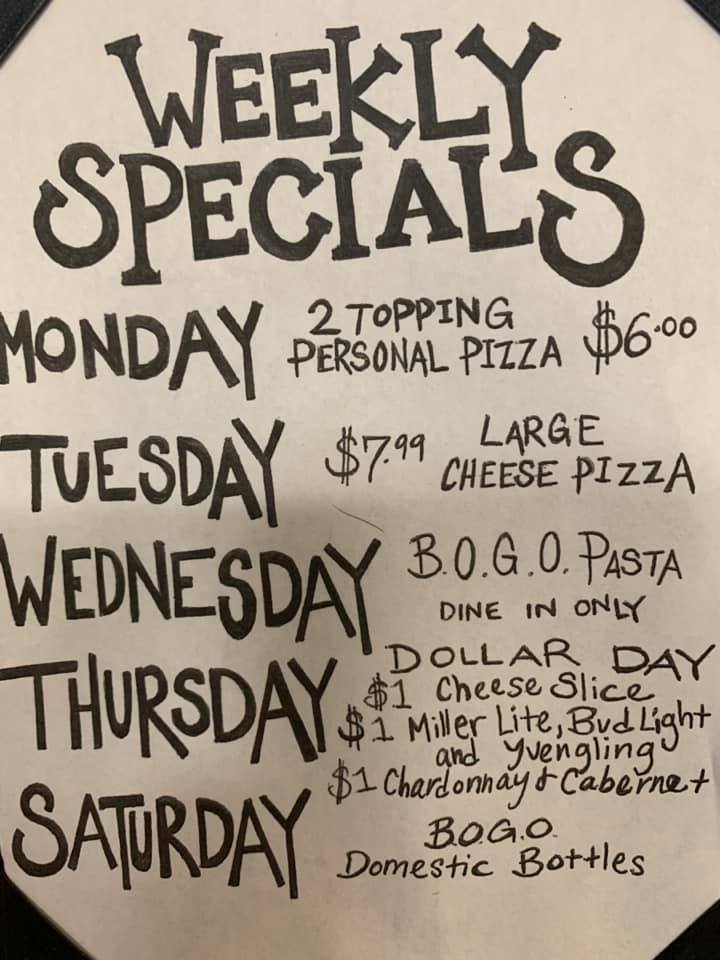 WEEKLY
SPECIALS
MONDAY 2 TOPPING PERSONAL PIZZA $6.00
TUESDAY $7.99 LARGE CHEESE PIZZA
WEDNESDAY B.O.G.O. PASTA
DINE IN ONLY
THURSDAY DOLLAR DAY
$1 Cheese Slice
$1 Miller Lite, Bud Light
and Yvengling
$1 Chardonnay & Cabernet
SATURDAY B.O.G.O.
Domestic Bottles